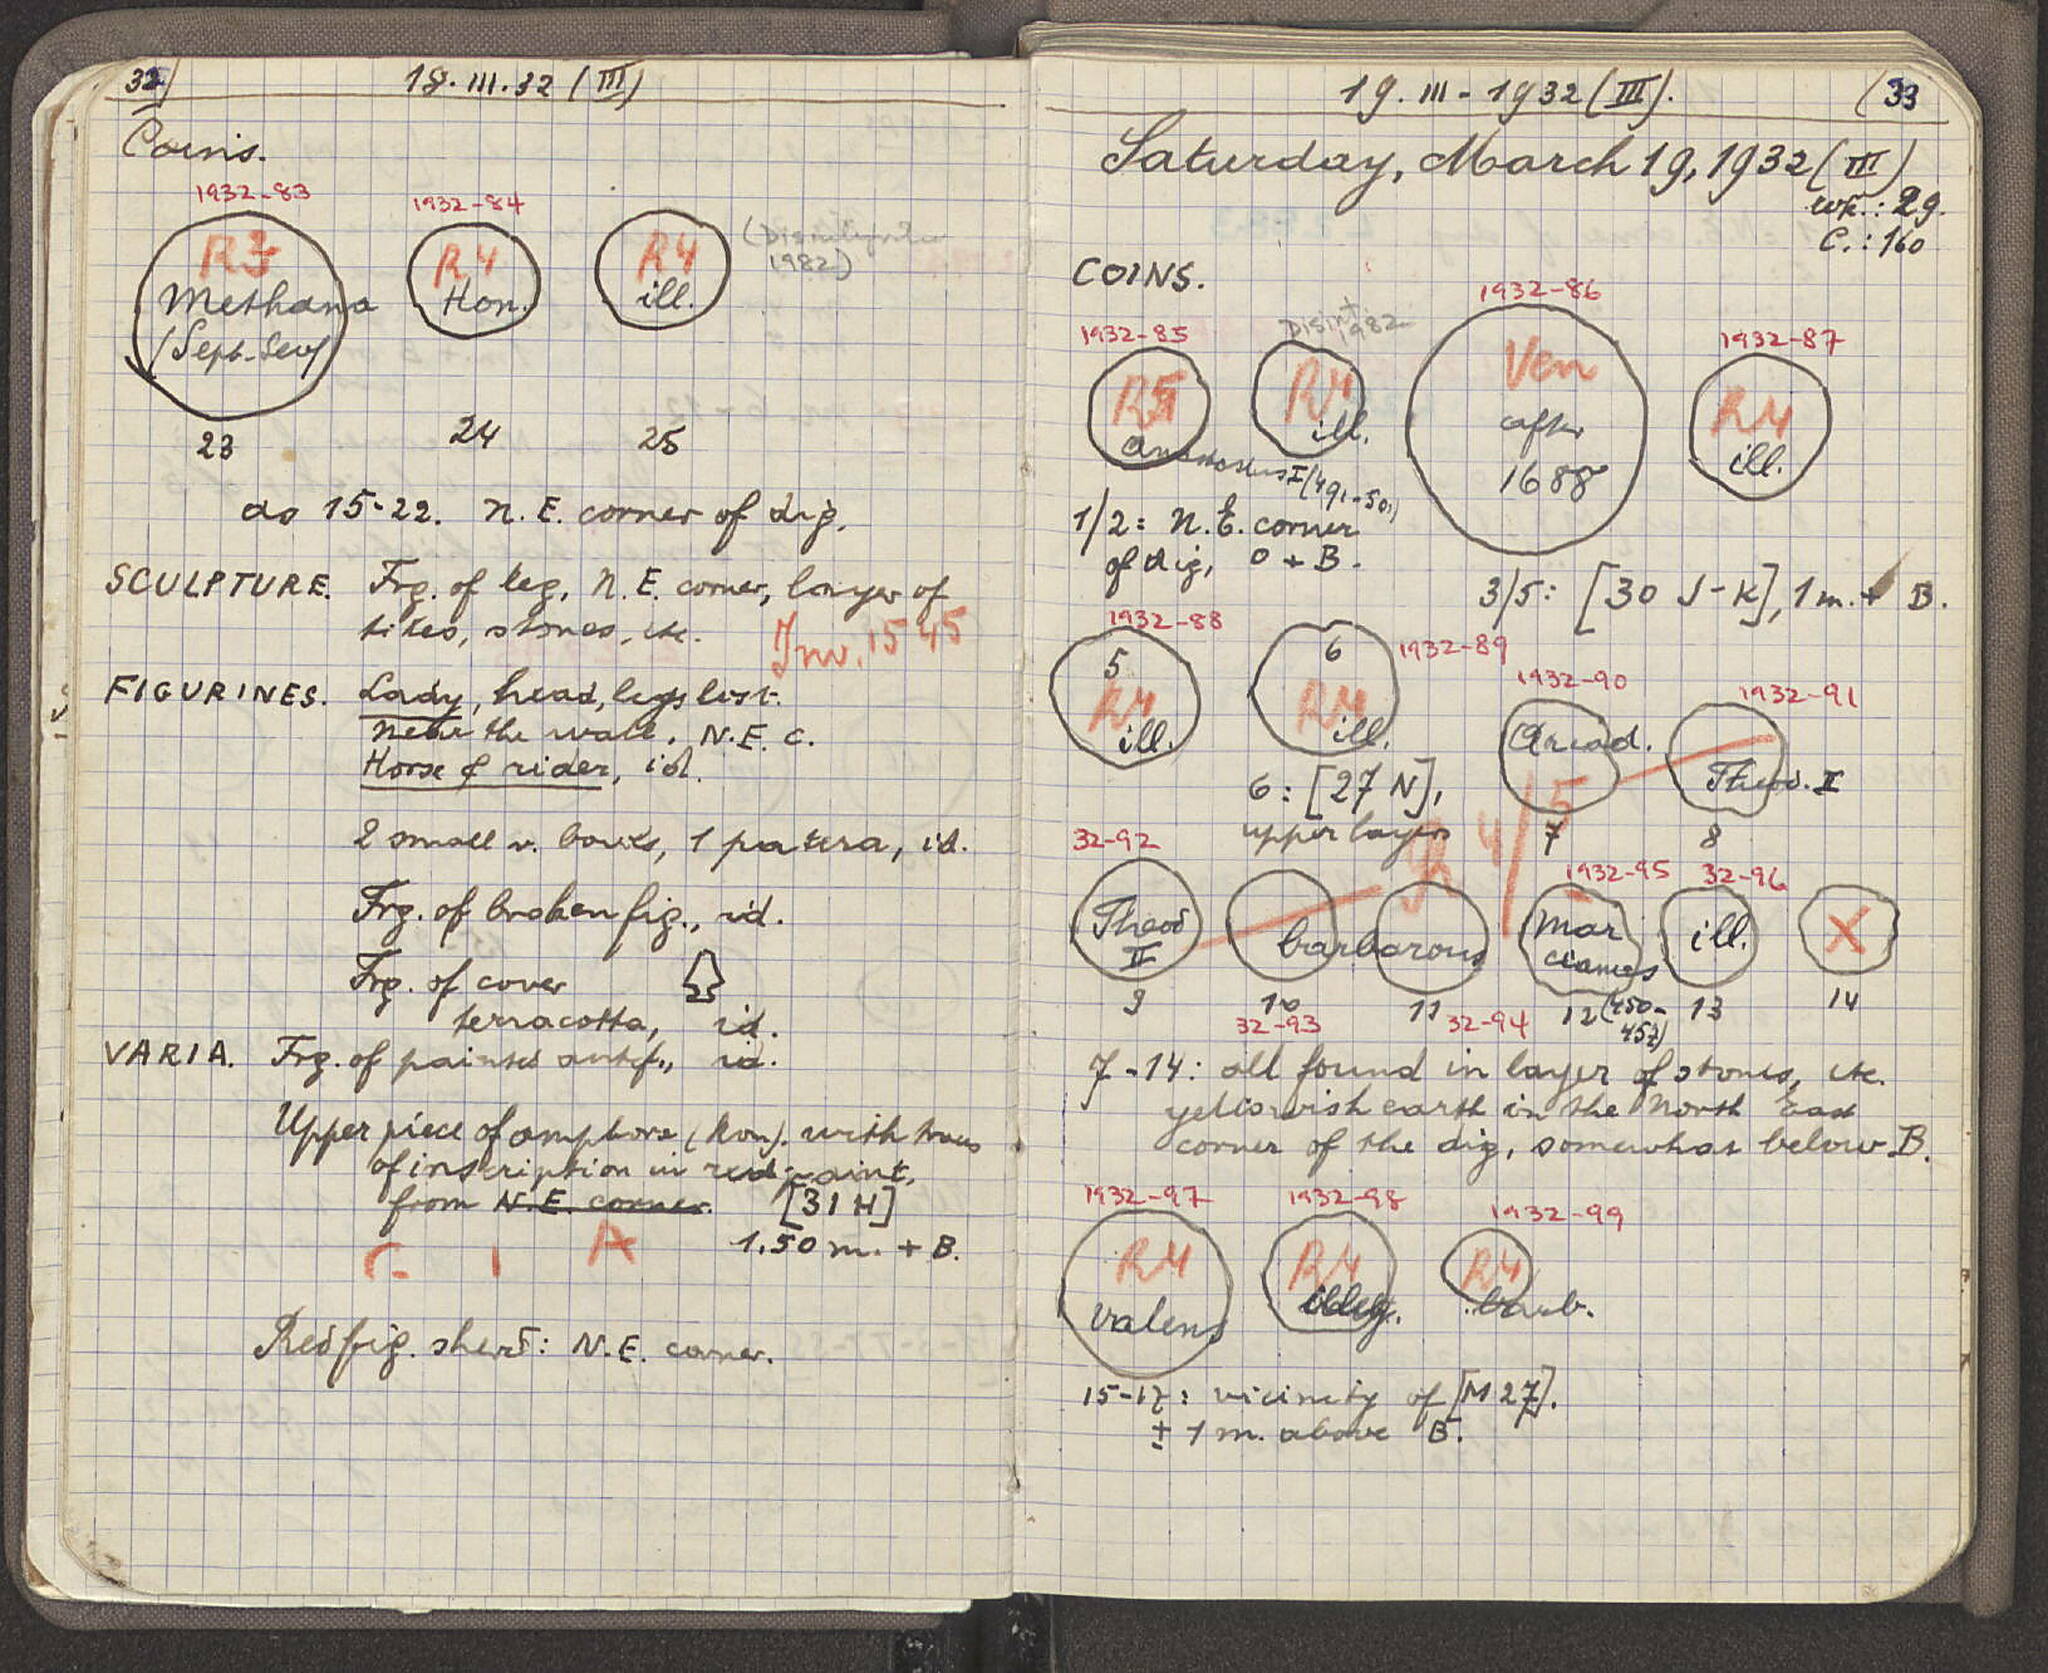 32)
18.III.32 (III)
Coins.
1932-83
1932-84
R3
Methana
(Sept. Sev)
R4
Hon.
R4
ill.
1982)
23
24
25
as 15-22. N.E. corner of dig.
SCULPTURE. Frg. of leg, N.E. corner, layer of
tiles, stones, etc.
Inv. 1545
FIGURINES. Lady, head, legs lost.
Near the wall, N.E. c.
Horse & rider, id.
2 small v. bowls, 1 patera, id.
Frg. of broken fig., id.
Frg. of cover
terracotta, id.
VARIA. Frg. of painted antef., id.
Upper piece of amphora (Rom). with traces
of inscription in red paint,
from N.E. corner. [31 H]
1.50 m. + B.
Γ I A
Redfig. sherd: N.E. corner.
19.III-1932 (III).
(33
Saturday, March 19, 1932 (III)
wk.: 29.
C.: 160
COINS.
1932-85
Disint.
1982
1932-86
1932-87
R5
Anastasius I (491-501)
R4
ill.
Ven
after
1688
R4
ill.
1/2: N.E. corner
of dig, 0 + B.
3/5: [30 J-K], 1 m. + B.
1932-88
1932-89
1932-90
1932-91
5
R4
ill.
6
R4
ill.
Arcad.
Theod. II
6: [27 N],
upper layers
7
8
R 4/5
32-92
1932-95
32-96
Theod
II
barbarous
Mar
cianus
ill.
X
9
10
11
12 (450-
457)
13
14
32-93
32-94
7-14: all found in layer of stones, etc.
yellowish earth in the North East
corner of the dig, somewhat below B.
1932-97
1932-98
1932-99
R4
Valens
R4
illeg.
R4
barb.
15-17: vicinity of [M 27].
± 1 m. above B.